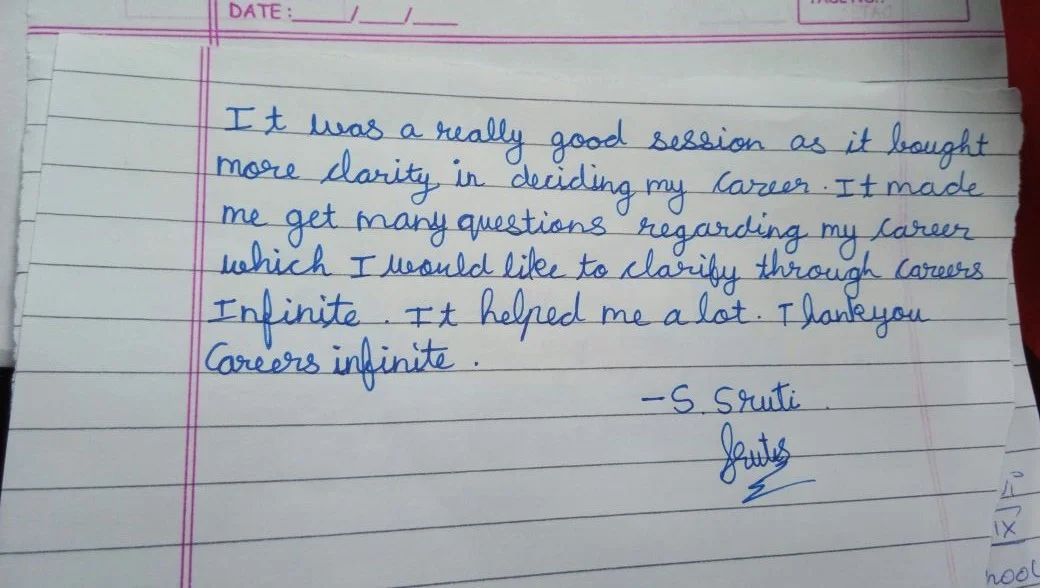 DATE: __/__/__
It was a really good session as it bought
more clarity in deciding my career. It made
me get many questions regarding my career
which I would like to clarify through careers
Infinite. It helped me a lot. Thankyou
Careers infinite.
- S. Sruti
Sruti
IX
hool